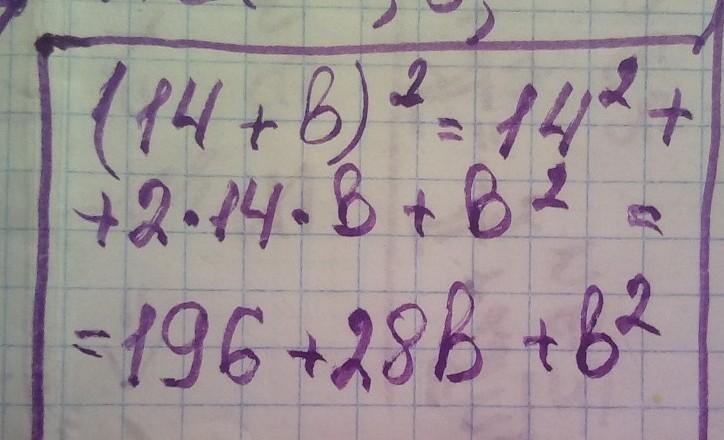 (14 + b)² = 14² +
+ 2 · 14 · b + b² =
= 196 + 28b + b²